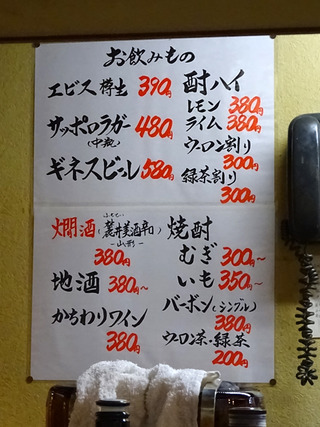 お飲みもの
エビス樽生 390円
サッポロラガー 480円
(中瓶)
ギネスビール 580円
酎ハイ
レモン 380円
ライム 380円
ウーロン割り
300円
緑茶割り
300円
燗酒
山形
380円
地酒 380円〜
かちわりワイン
380円
焼酎
むぎ 300円〜
いも 350円〜
バーボン(シングル)
380円
ウーロン茶・緑茶
200円